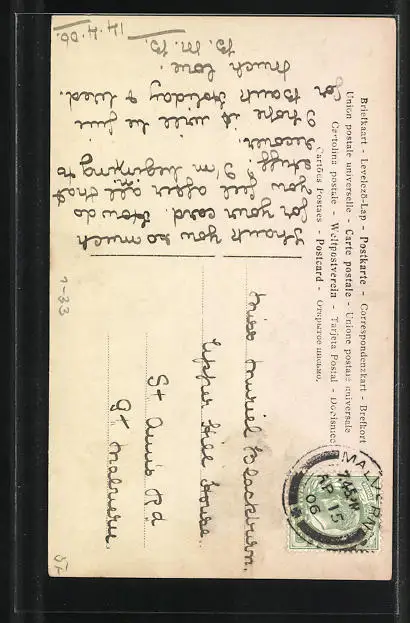 Briefkaart - Levelező-Lap - Postkarte - Correspondenzkart - Brefkort
Union postale universelle - Carte postale - Unione postale universale
Cartolina postale - Weltpostverein - Tarjeta Postal - Dopisnice
Cartões Postaes - Postcard - Открытое письмо.
MALVERN
AP 15
06
Thank you so much
for your card. How do
you feel after all that
stuff. I'm beginning to
recover.
I hope it will be fine
for Bank Holiday & Wed.
Much love.
B. M. B.
14.4.06.
Miss Muriel Blackburn.
Upper Hill House.
St Ann's Rd
Gt Malvern.
1-33